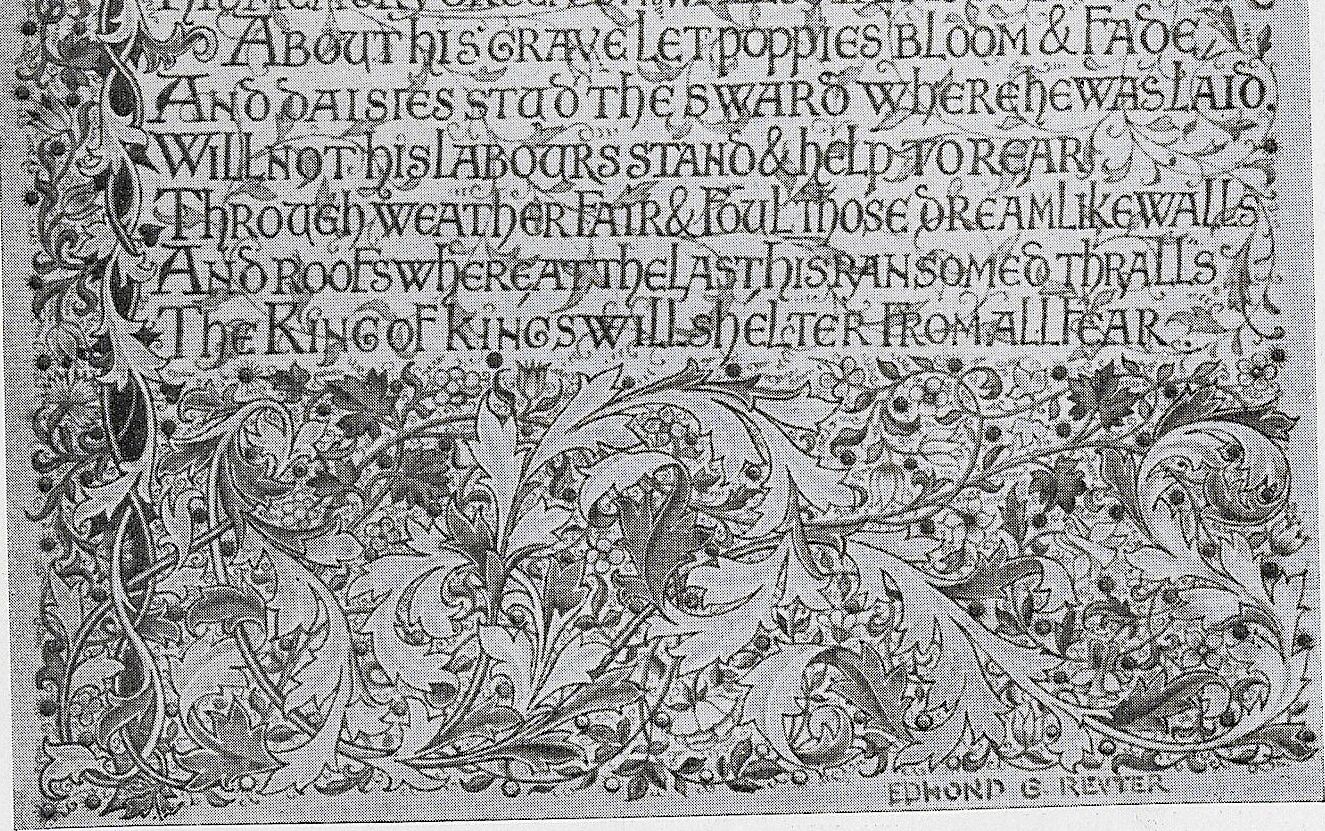 ABOUT HIS GRAVE LET POPPIES BLOOM & FADE,
AND DAISIES STUD THE SWARD WHERE HE WAS LAID.
WILL NOT HIS LABOURS STAND & HELP TO REAR,
THROUGH WEATHER FAIR & FOUL THOSE DREAMLIKE WALLS
AND ROOFS WHERE AT THE LAST HIS RANSOMED THRALLS
THE KING OF KINGS WILL SHELTER FROM ALL FEAR.
EDMOND G REVTER